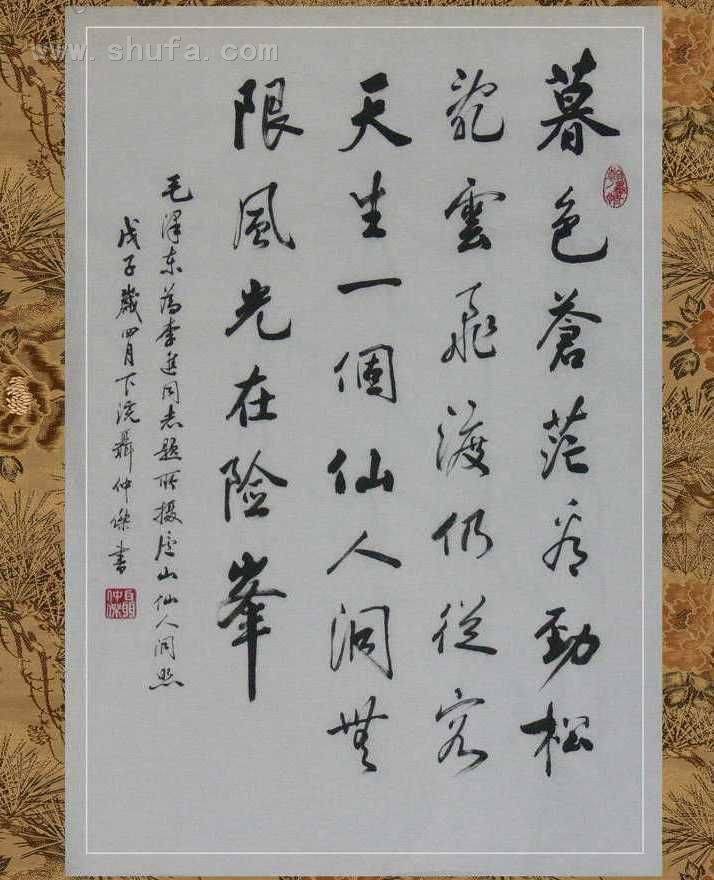 www.shufa.com
暮色蒼茫看勁松
亂雲飛渡仍從容
天生一個仙人洞無
限風光在险峯
毛澤东為李進同志題所摄廬山仙人洞照
戊子歲四月下浣聶仲傑書